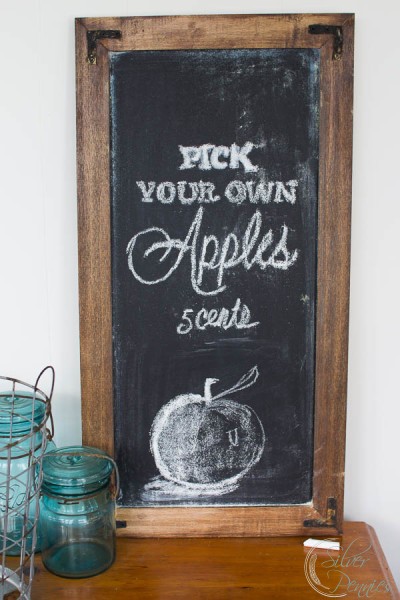 PICK
YOUR OWN
Apples
5 cents
Silver
Pennies